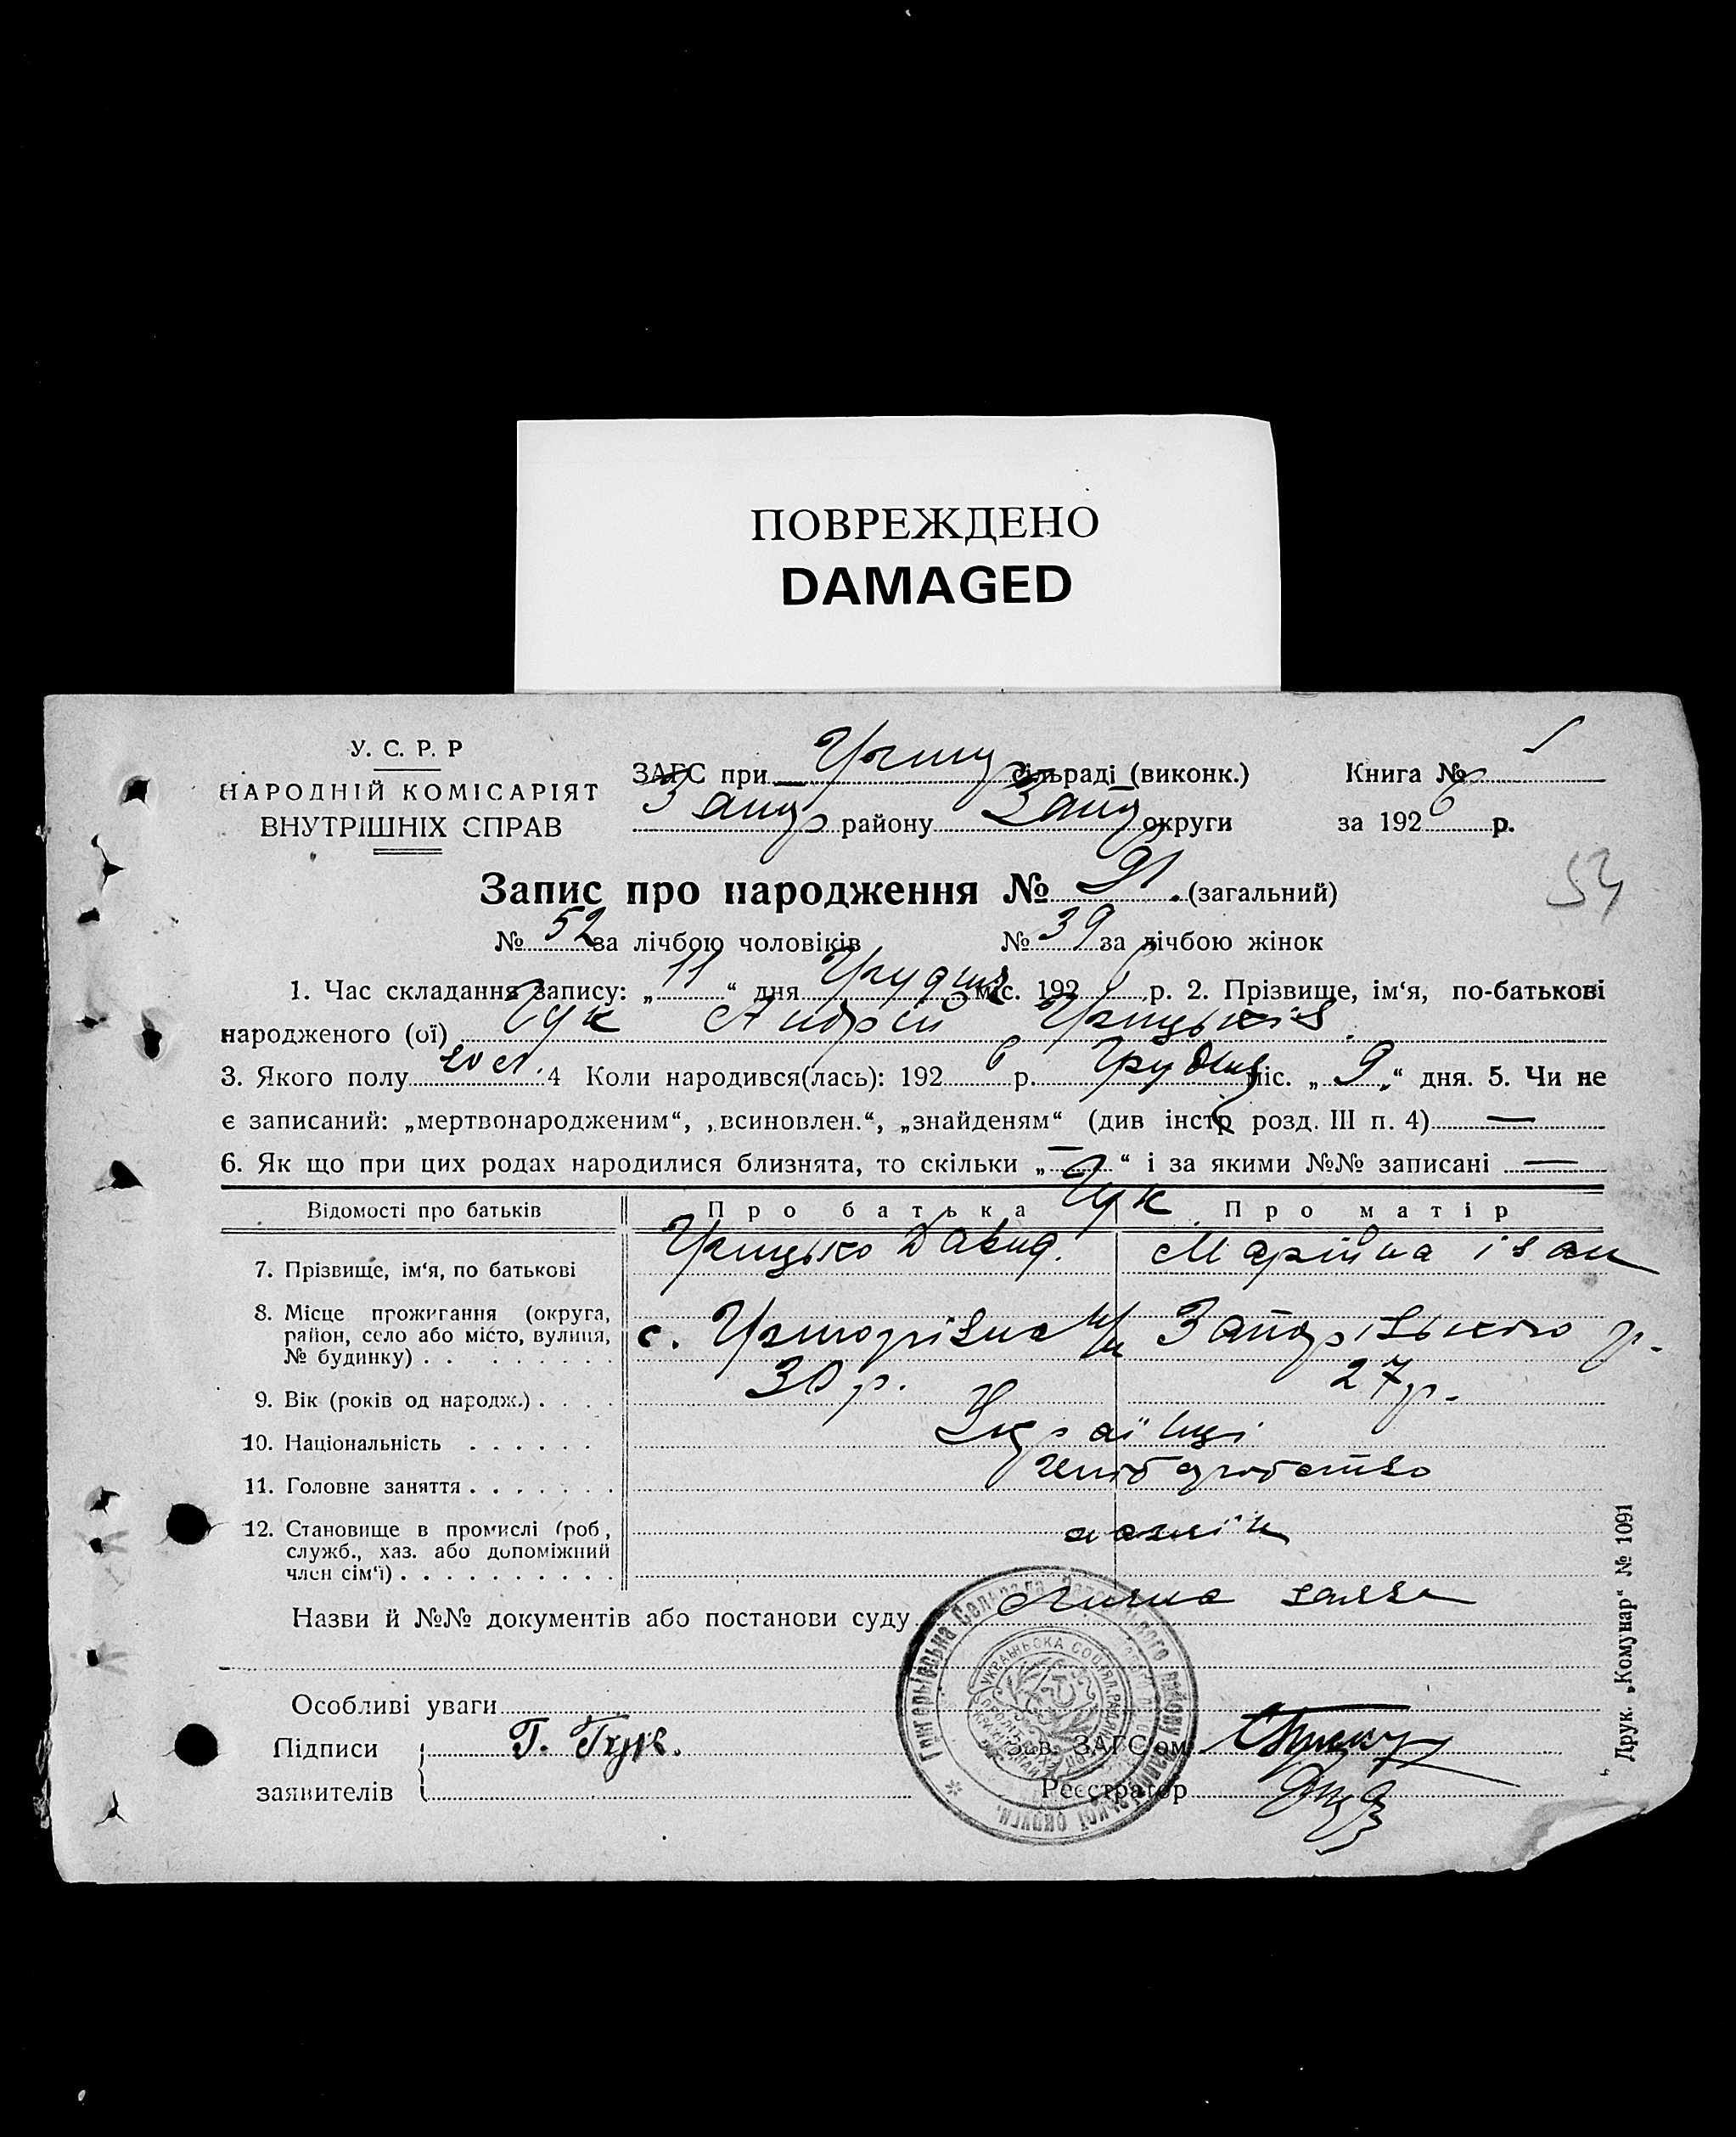 ПОВРЕЖДЕНО
DAMAGED
У. С. Р. Р
НАРОДНІЙ КОМІСАРІЯТ
ВНУТРІШНІХ СПРАВ
ЗАГС при Григ сільраді (виконк.)
Запор району Запор округи
Книга № 1
за 1926 р.
Запис про народження № 91. (загальний)
54
№ 52 за лічбою чоловіків № 39 за лічбою жінок
1. Час складання запису: „11“ дня Грудня міс. 1926 р. 2. Прізвище, ім‘я, по-батькові
народженого (ої) Гук Андрій Грицьків.
3. Якого полу чол. 4 Коли народився(лась): 1926 р. Грудня міс. „9“ дня. 5. Чи не
є записаний: „мертвонародженим“, „всиновлен.“, „знайденям“ (див інстр розд. III п. 4) —
6. Як що при цих родах народилися близнята, то скільки „—“ і за якими №№ записані —
Відомості про батьків Про батька Про матір
Гук
7. Прізвище, ім‘я, по батькові Грицько Давид. Марійна Іван
8. Місце прожигання (округа, район, село або місто, вулиця, № будинку) с. Григорівка Запорізького р.
9. Вік (років од народж.) 30 р. 27 р.
10. Національність Українці
11. Головне заняття хліборобство
12. Становище в промислі (роб, служб., хаз. або допоміжний член сім‘ї) хазяїн
Назви й №№ документів або постанови суду Лична заява
Особливі уваги
Підписи заявителів Г. Гук.
Зав. ЗАГС‘ом
Реєстратор
Друк. „Комунар“ № 1091